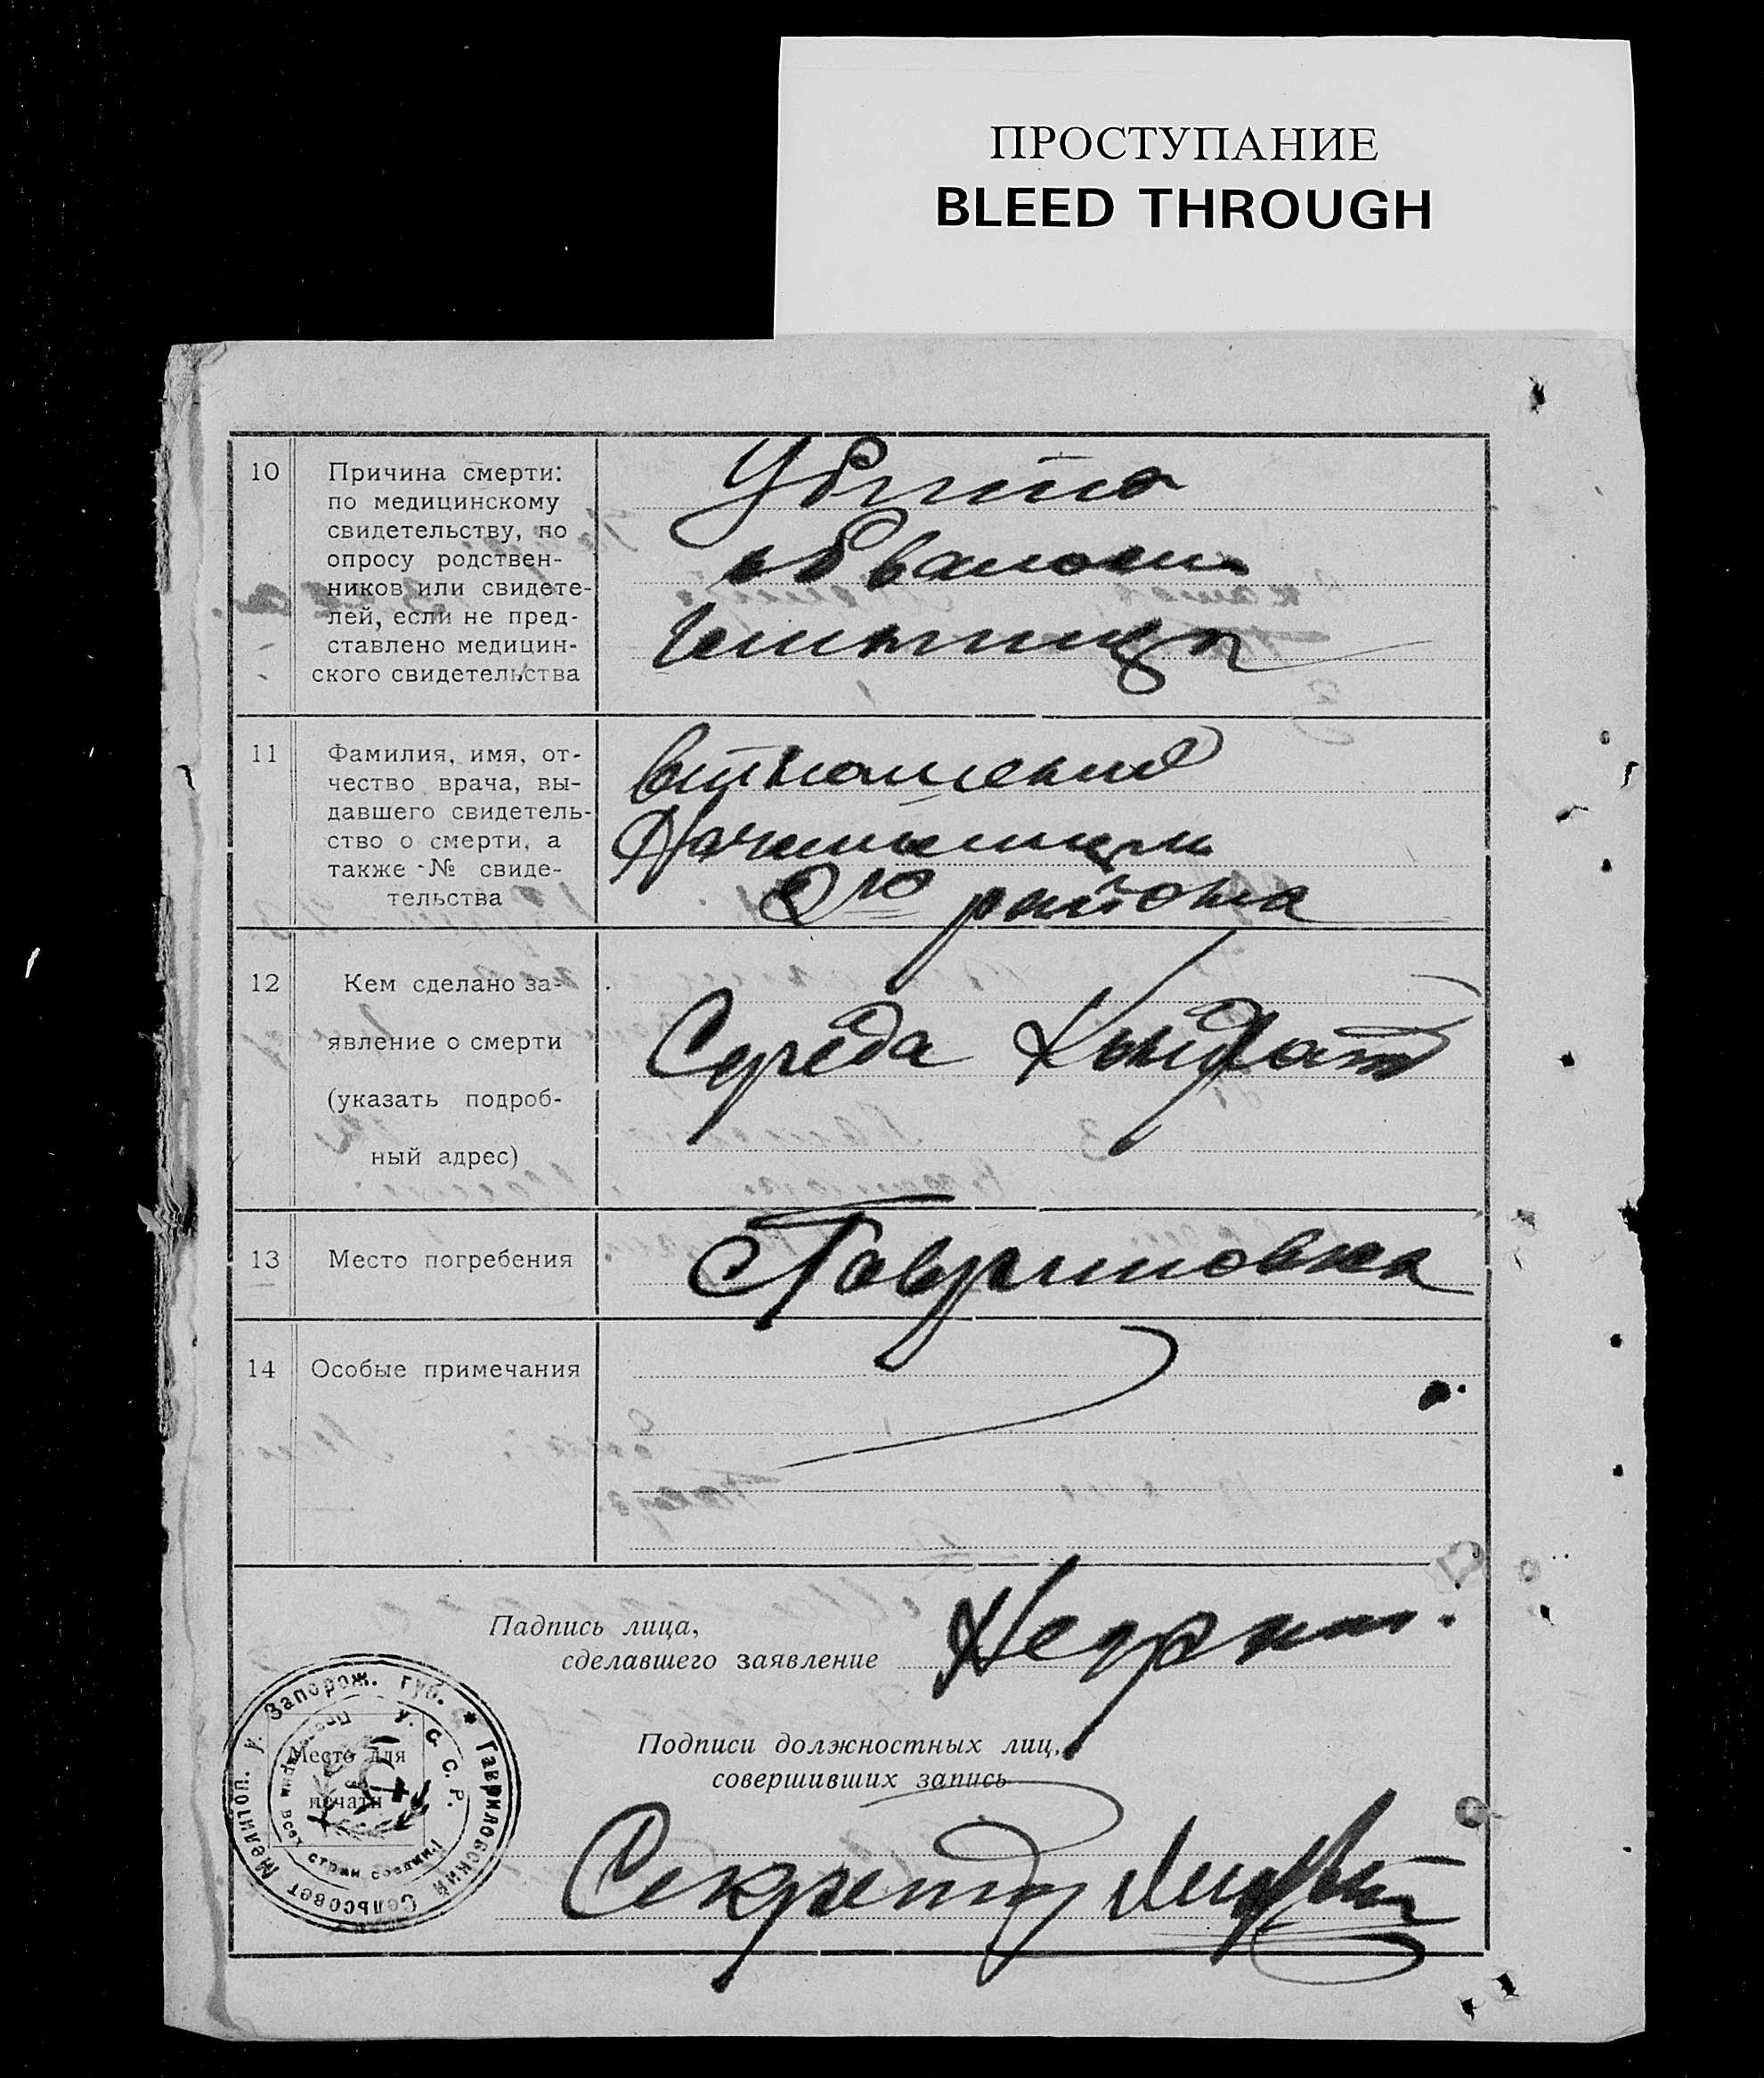 ПРОСТУПАНИЕ
BLEED THROUGH
10
Причина смерти:
по медицинскому
свидетельству, по
опросу родствен-
ников или свидете-
лей, если не пред-
ставлено медицин-
ского свидетельства
Убито
обвалом
11
Фамилия, имя, от-
чество врача, вы-
давшего свидетель-
ство о смерти, а
также № свиде-
тельства
2го района
12
Кем сделано за-
явление о смерти
(указать подроб-
ный адрес)
Середа
13
Место погребения
Гавриловка
14
Особые примечания
Падпись лица,
сделавшего заявление
Подписи должностных лиц,
совершивших запись
Секретар
Место для
печати
Мелитоп. у. Запорож. губ. * Гавриловский Сельсовет
У. С. С. Р.
Пролетарии всех стран соедин.!